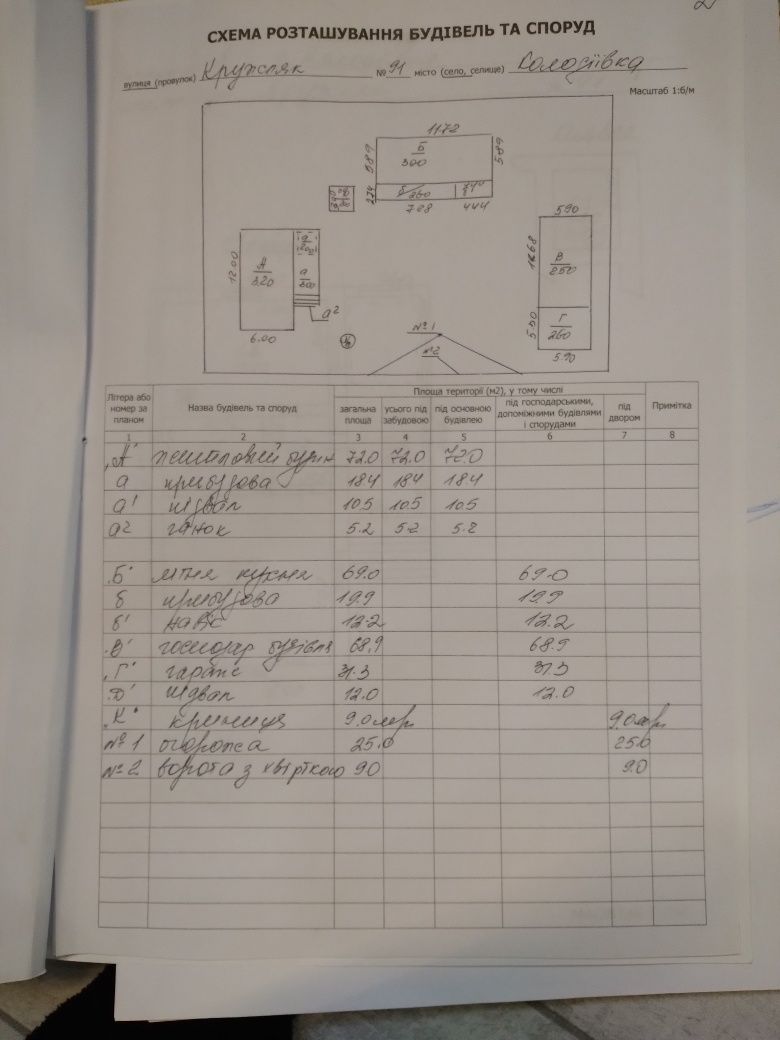 СХЕМА РОЗТАШУВАННЯ БУДІВЕЛЬ ТА СПОРУД
вулиця (провулок) Кружляк № 91 місто (село, селище) Колодіївка
Масштаб 1:б/м
1172
589 Б 300 589
274 б 260
728 444
590
1200 А 320
а 300
а2
6.00
1168 В 250
Г 260
5.90
№1
№2
Літера або номер за планом
Назва будівель та споруд
Площа території (м2), у тому числі
загальна площа
усього під забудовою
під основною будівлею
під господарськими, допоміжними будівлями і спорудами
під двором
Примітка
1 2 3 4 5 6 7 8
"А" житловий будин 72.0 72.0 72.0
а прибудова 18.4 18.4 18.4
а1 підвал 10.5 10.5 10.5
а2 ганок 5.2 5.2 5.2
"Б" літня кухня 69.0 69.0
б прибудова 19.9 19.9
б' навіс 12.2 12.2
"В" господар будівля 68.9 68.9
"Г" гараж 31.3 31.3
"Д" підвал 12.0 12.0
"К" криниця 9.0 м.гл 9.0 м.гл
№1 огорожа 25.0 25.0
№2 ворота з хвірткою 9.0 9.0